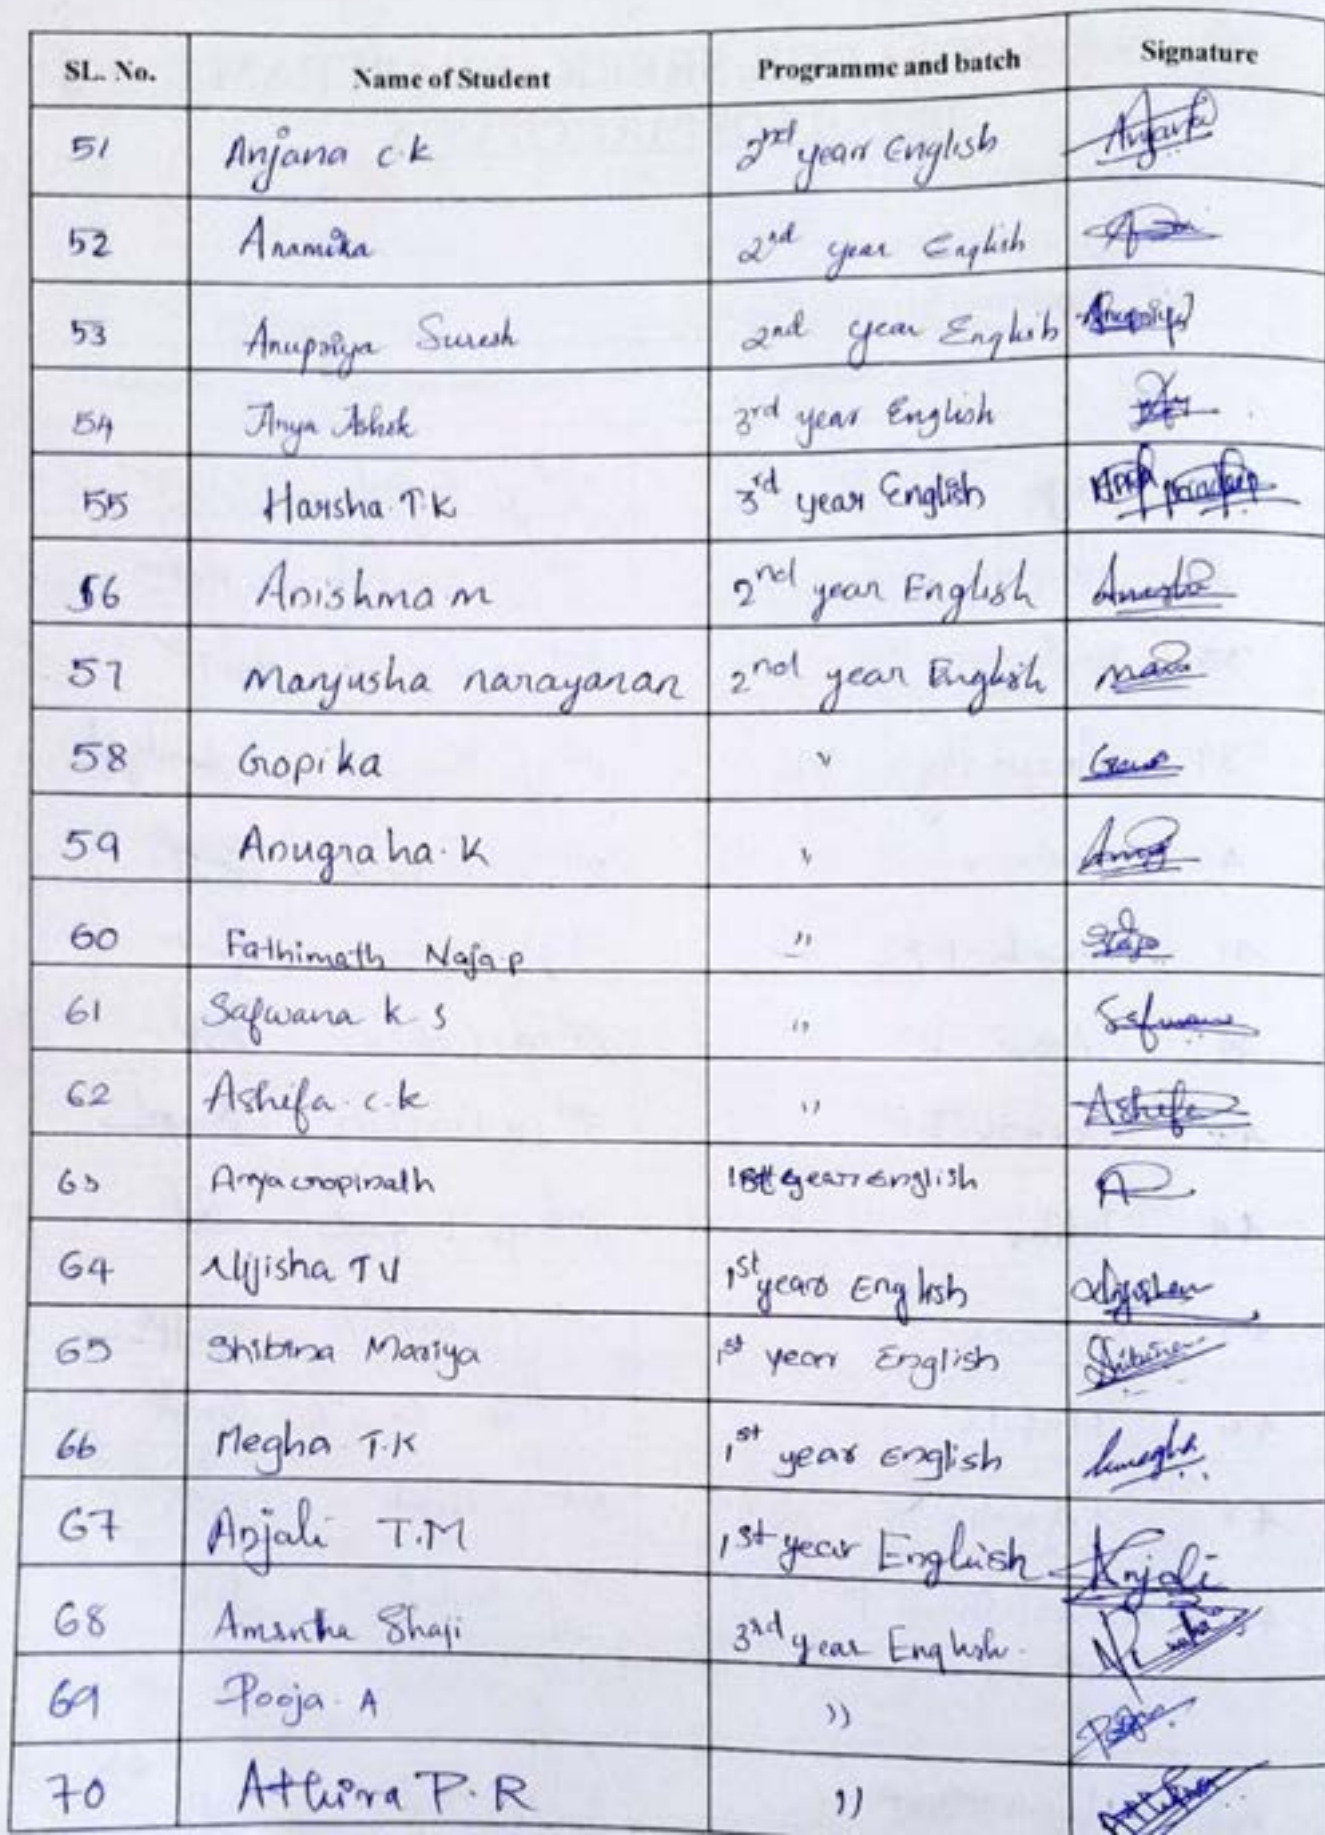 SL. No. Name of Student Programme and batch Signature
51 Anjana c.k 2nd year English Anjana
52 Anamika 2nd year English
53 Anupriya Suresh 2nd year English Anupriya
54 Anya Ashok 3rd year English
55 Harsha T.K 3rd year English
56 Anishma m 2nd year English
57 Manjusha narayanan 2nd year English
58 Gopika "
59 Anugraha. K "
60 Fathimath Naja.p "
61 Safwana k s " Safwana
62 Ashifa c.k " Ashifa
63 Arya Gopinath 1st year English
64 Nijisha T V 1st year English
65 Shibina Mariya 1st year English Shibina
66 Megha T.K 1st year English
67 Anjali T.M 1st year Engluish Anjali
68 Amrutha Shaji 3rd year English.
69 Pooja A "
70 Athira P. R "